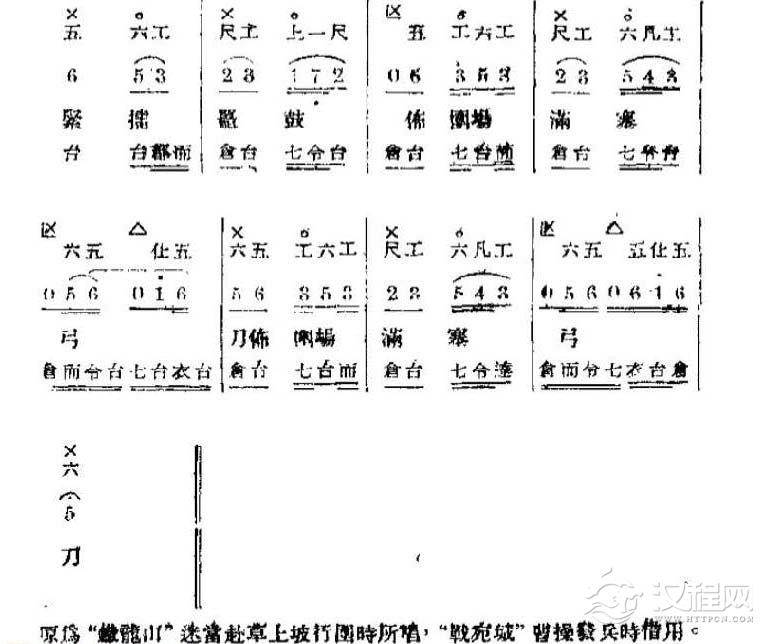 × ○ × ○ 区 ○ × ○
五 六工 尺工 上一尺 五 工六工 尺工 六凡工
6 53 23 172 06 353 23 543
緊 擂 鼓 佈圍場 滿 寨
台 台都而 倉台 七令台 倉台 七台而 倉台 七令台
区 △ × ○ × ○ 区 △
六五 仕五 六五 工六工 尺工 六凡工 六五 五仕五
056 016 56 353 23 543 056 0616
弓 刀佈圍場 滿 寨 弓
倉而令台七台衣台 倉台 七台而 倉台 七令 倉而令七衣台倉
×
六
5
刀
原爲“鐵龍山”迷當赴草上坡行圍時所唱，“戰宛城”曹操發兵時借用。
汉程网
WWW.HTTPCN.COM